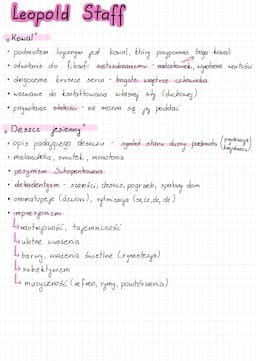 Leopold Staff
„Kowal"
• podmiotem lirycznym jest kowal, który przypomina boga kowali
• odwołanie do filozofii nietzscheanizmu - nadczłowiek, wysokie wartości
• drogocenne kruszce serca - bogate wnętrze człowieka
• wezwanie do kształtowania własnej siły (duchowej)
• przezwyciężanie słabości - nie można się jej poddać
„Deszcz jesienny"
• opis padającego deszczu - symbol stanu duszy podmiotu (psychizacja krajobrazu)
• melancholia, smutek, monotonia
• pesymizm Schopenhauera
• dekadentyzm - szarości, deszcz, pogrzeb, spalony dom
• onomatopeje (dzwoni), rytmizacja (sz, cz, dz, dż)
• impresjonizm
nastrojowość, tajemniczość
ulotne wrażenia
barwy, wrażenia świetlne (synestezja)
subiektywizm
muzyczność (refren, rymy, powtórzenia)